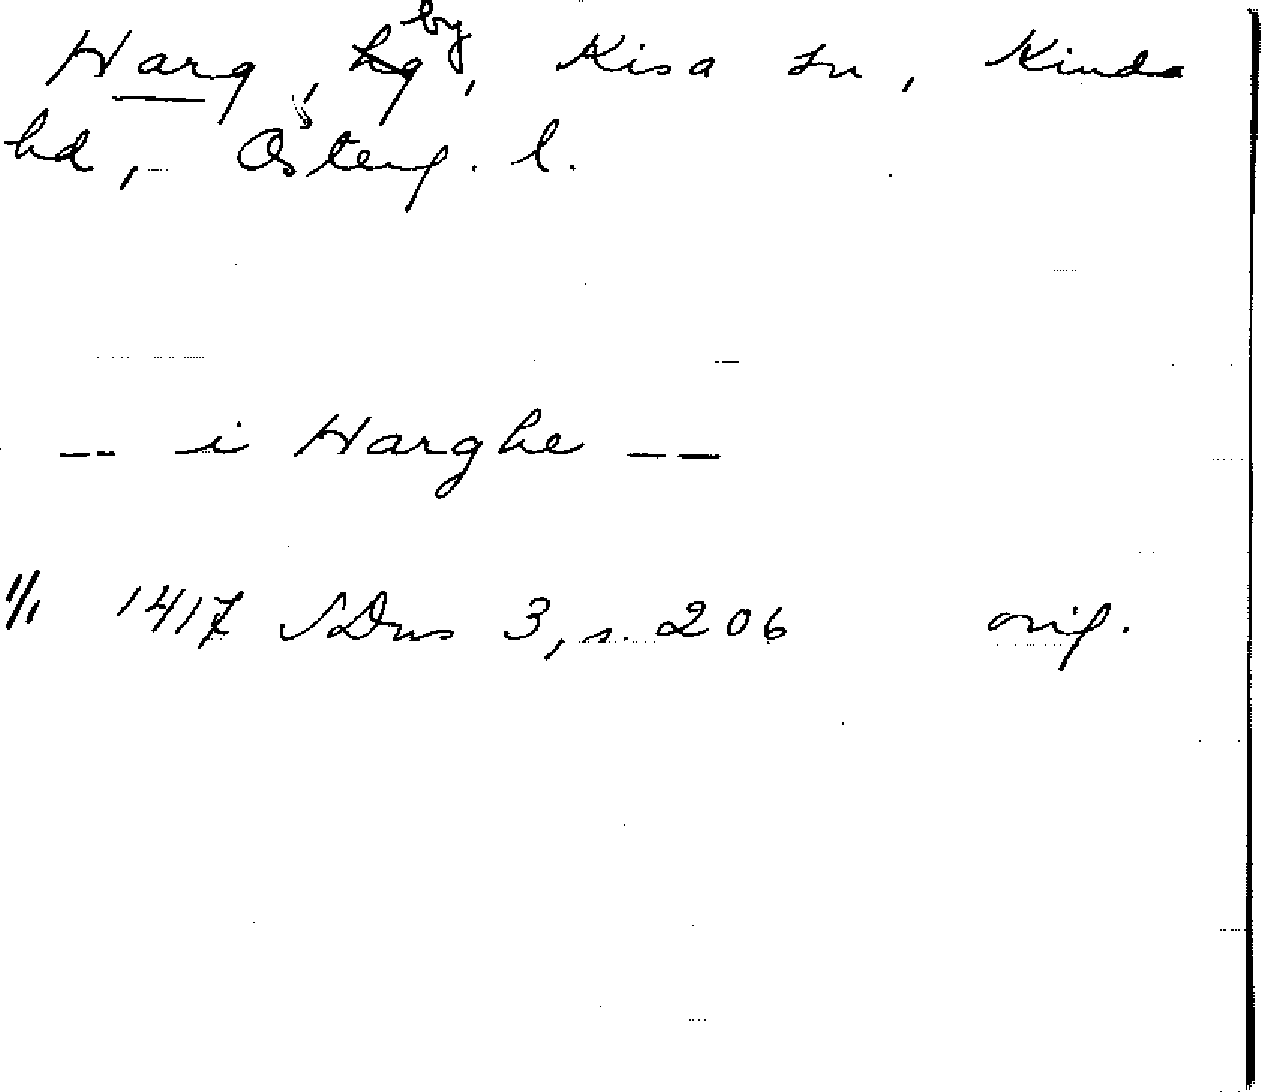 Harg, by, Kisa sn, Kinda
hd, Österg. l.
-- i Harghe --
1/1 1417 SDns 3, s. 206 orig.